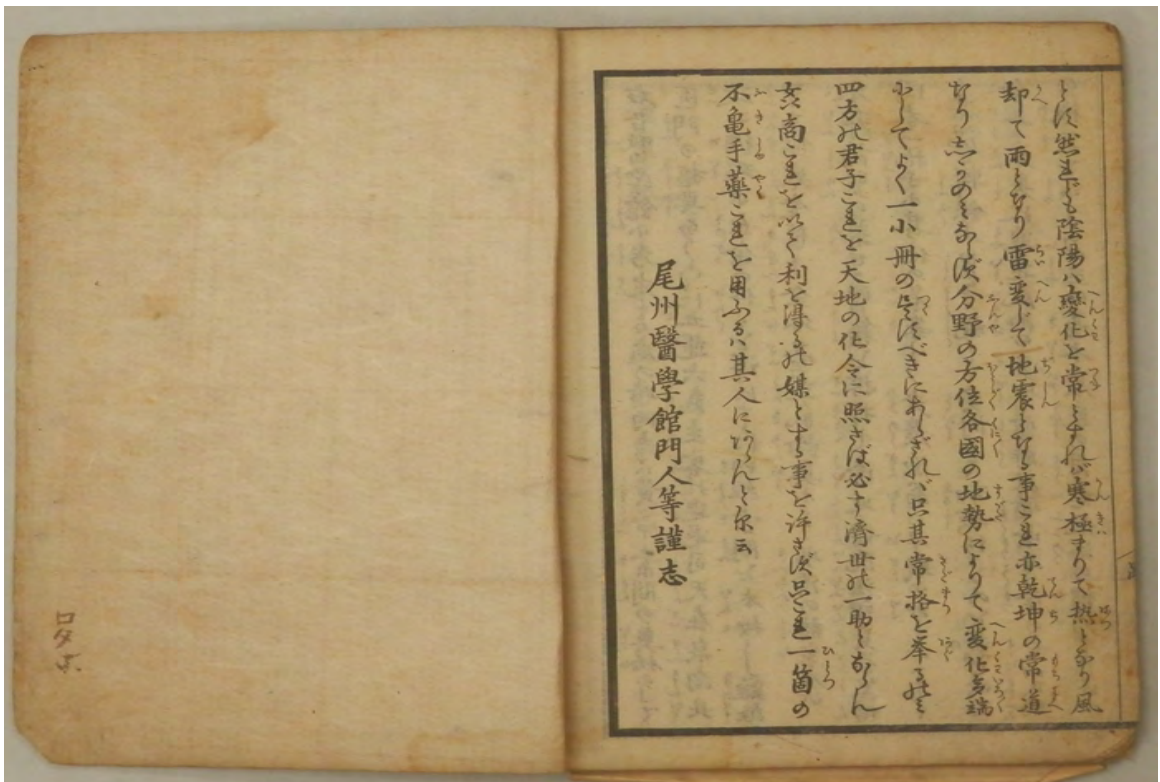 とす然れども陰陽ハ變化を常とすれバ寒極まりて熱となり風
却て雨となり雷変じて地震となる事これ亦乾坤の常道
なり志かのミならず分野の方位各國の地勢によりて変化多端
にしてよく一小冊の尽すべきにあらざれバ只其常格を挙るのミ
四方の君子これを天地の化令に照さば必す濟世の一助とならん
商これを以て利を得るの媒とする事を許さず只これ一箇の
不亀手藥これを用ふるハ其人にあらんと尓云
尾州醫學館門人等謹志